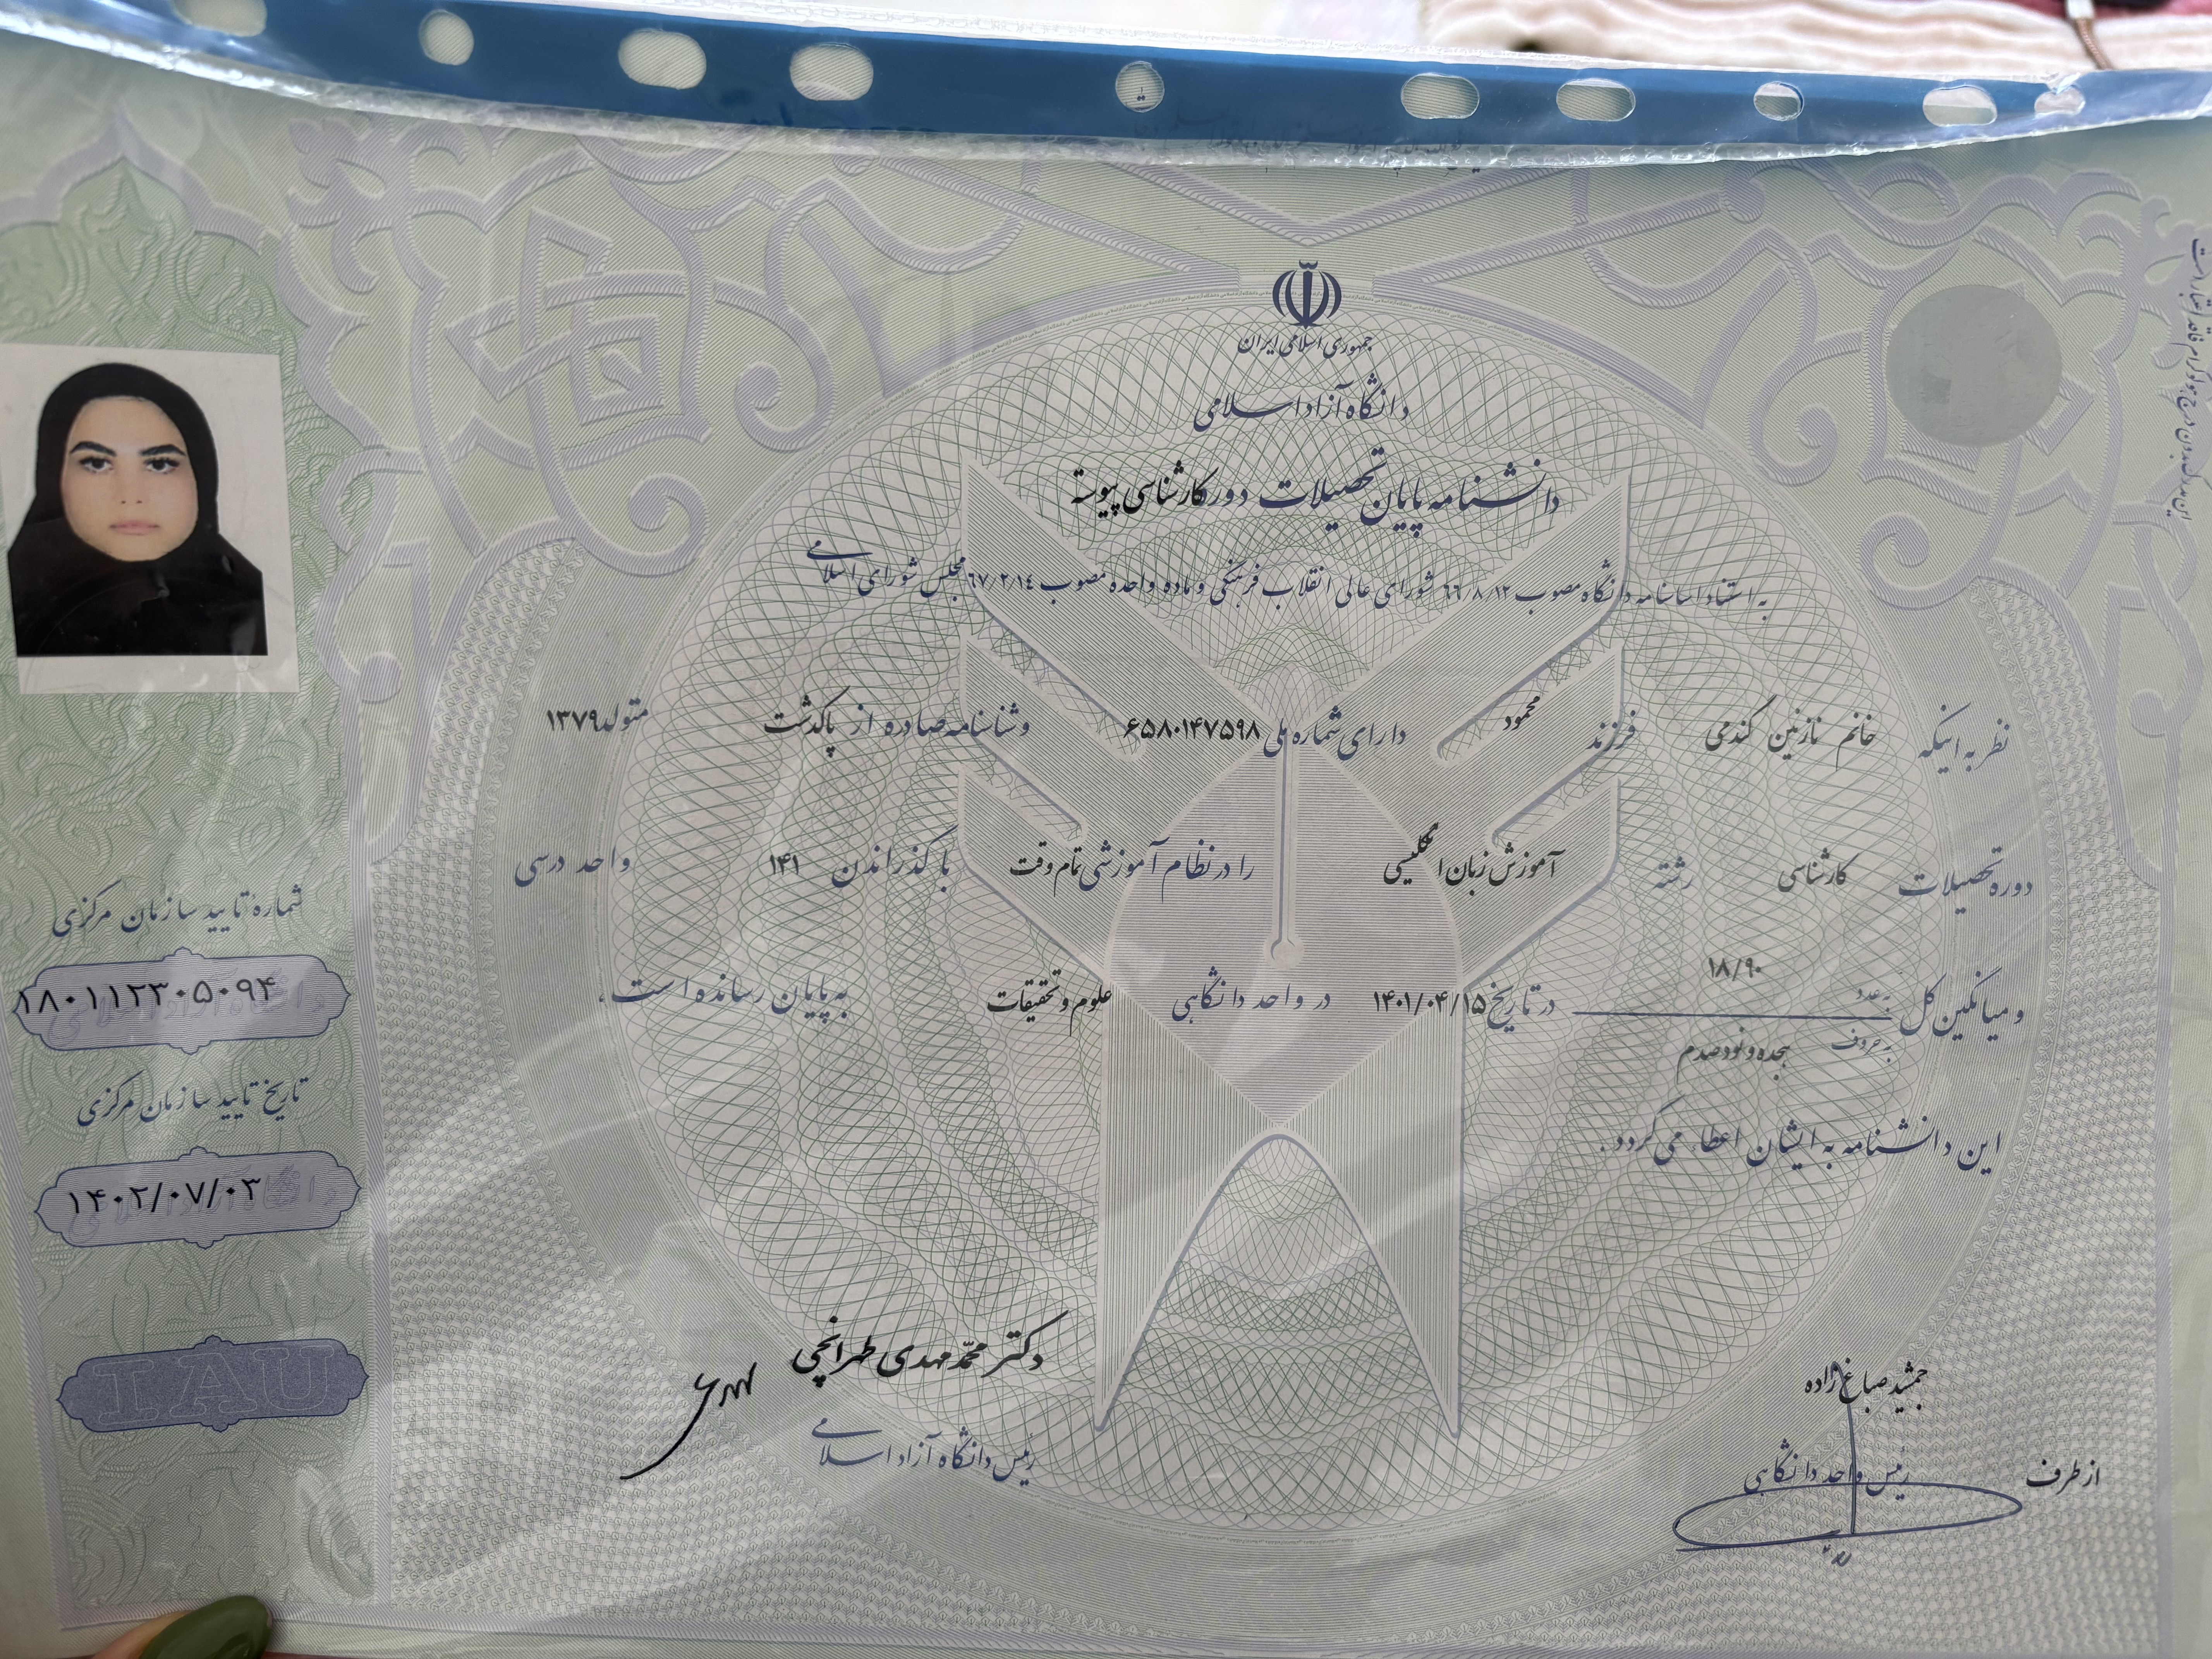 جمهوری اسلامی ایران
دانشگاه آزاد اسلامی
دانشنامه پایان تحصیلات دوره کارشناسی پیوسته
به استناد اساسنامه دانشگاه مصوب ۶۶/۸/۱۲ شورای عالی انقلاب فرهنگی و ماده واحده مصوب ۶۷/۲/۱۴ مجلس شورای اسلامی
نظر به اینکه خانم نازنین گندمی فرزند محمود دارای شماره ملی ۶۵۸۰۱۴۷۵۹۸ و شناسنامه صادره از پاکدشت متولد ۱۳۷۹
دوره تحصیلات کارشناسی رشته آموزش زبان انگلیسی را در نظام آموزشی تمام وقت با گذراندن ۱۴۱ واحد درسی
و میانگین کل به عدد ۱۸/۹۰
به حروف هجده و نود صدم
در تاریخ ۱۴۰۱/۰۴/۱۵ در واحد دانشگاهی علوم و تحقیقات به پایان رسانده است،
این دانشنامه به ایشان اعطا می گردد.
جمشید صباغ زاده
از طرف رئیس واحد دانشگاهی
دکتر محمد مهدی طهرانچی
رئیس دانشگاه آزاد اسلامی
شماره تایید سازمان مرکزی
۱۸۰۱۱۲۳۰۵۰۹۴
تاریخ تایید سازمان مرکزی
۱۴۰۲/۰۷/۰۳
IAU
این مدرک بدون درج هولوگرام فاقد اعتبار است